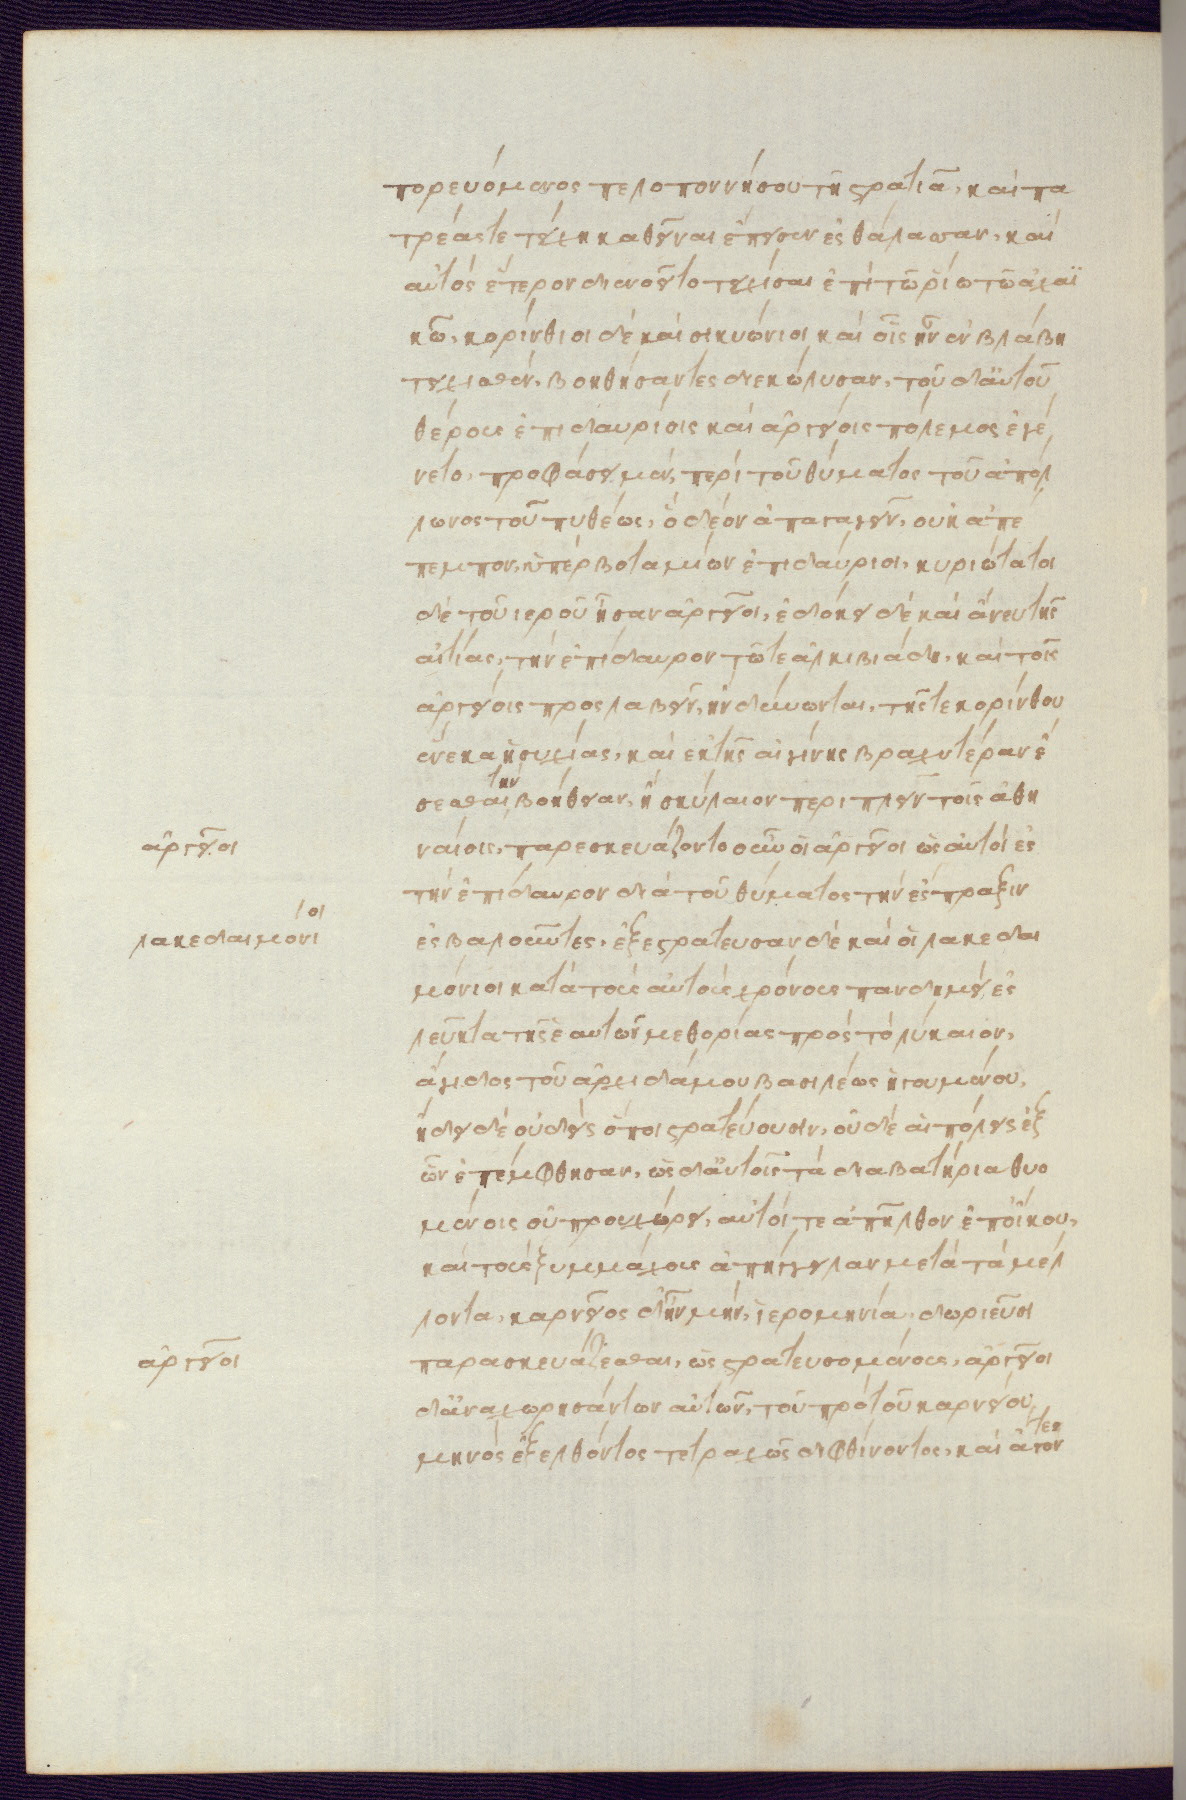 πορευόμενος πελοποννήσου τῆ στρατιᾶ, καὶ πα
τρέας τε τείχη καθεῖναι ἔπεισεν ἐς θάλασσαν, καὶ
αὐτὸς ἕτερον διενοεῖτο τειχίσαι ἐπὶ τῶ ῥίω τῶ ἀχαϊ
κῶ, κορίνθιοι δὲ καὶ σικυώνιοι καὶ οἷς ἦν ἐν βλάβη
τειχισθέν, βοηθήσαντες διεκώλυσαν, τοῦ δ'αὐτοῦ
θέρους ἐπιδαυρίοις καὶ ἀργείοις πόλεμος ἐγέ
νετο, προφάσει μέν, περὶ τοῦ θύματος τοῦ ἀπόλ
λωνος τοῦ πυθέως, ὃ δέον ἀπαγαγεῖν, οὐκ ἀπέ
πεμπον, ὑπὲρ βοταμίων ἐπιδαύριοι, κυριώτατοι
δὲ τοῦ ἱεροῦ ἦσαν ἀργεῖοι, ἐδόκει δὲ καὶ ἄνευ τῆς
αἰτίας, τὴν ἐπίδαυρον τῶ τε ἀλκιβιάδη, καὶ τοῖς
ἀργείοις προσλαβεῖν, ἢν δύνωνται, τῆς τε κορίνθου
ἕνεκα ἡσυχίας, καὶ ἐκ τῆς αἰγίνης βραχυτέραν ἔ
σεσθαι τὴν βοήθειαν, ἢ σκύλαιον περιπλεῖν τοῖς ἀθη
ἀργεῖοι
ναίοις, παρεσκευάζοντο οὖν οἱ ἀργεῖοι ὡς αὐτοὶ ἐς
τὴν ἐπίδαυρον διὰ τοῦ θύματος τὴν ἔσπραξιν
λακεδαιμόνιοι
ἐσβαλοῦντες, ἐξεστράτευσαν δὲ καὶ οἱ λακεδαι
μόνιοι κατὰ τοὺς αὐτοὺς χρόνους πανδημεὶ ἐς
λεῦκτα τῆς ἑαυτῶν μεθορίας πρὸς τὸ λύκαιον,
ἄγιδος τοῦ ἀρχιδάμου βασιλέως ἡγουμένου,
ἤδει δὲ οὐδεὶς ὅποι στρατεύουσιν, οὐδὲ αἱ πόλεις ἐξ
ὧν ἐπέμφθησαν, ὡς δ'αὐτοῖς τὰ διαβατήρια θυο
μένοις οὐ προυχώρει, αὐτοί τε ἀπῆλθον ἐπ'οἴκου,
καὶ τοῖς ξυμμάχοις ἀπήγγειλαν μετὰ τὰ μέλ
λοντα, καρνεῖος δ'ἦν μήν, ἱερομηνία δωριεῦσι
ἀργεῖοι
παρασκευάζεσθαι, ὡς στρατευσομένους, ἀργεῖοι
δ'ἀναχωρησάντων αὐτῶν, τοῦ πρὸ τοῦ καρνείου
μηνὸς ἐξελθόντος τετραχῶς δ φθίνοντος, καὶ ἄγοντες